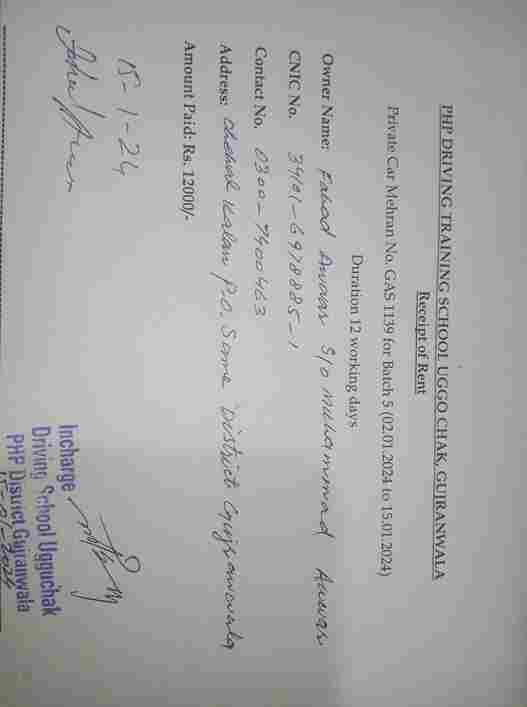 PHP DRIVING TRAINING SCHOOL UGGO CHAK, GUJRANWALA
Receipt of Rent
Private Car Mehran No. GAS 1139 for Batch 5 (02.01.2024 to 15.01.2024)
Duration 12 working days
Owner Name: Fahad Anwar S/O Muhammad Anwar
CNIC No. 34101-6978885-1
Contact No. 0300-7400463
Address: Chahal Kalan P.O. Same District Gujranwala
Amount Paid: Rs. 12000/-
15-1-24
Incharge
Driving School Ugguchak
PHP District Gujranwala
15-01-2024